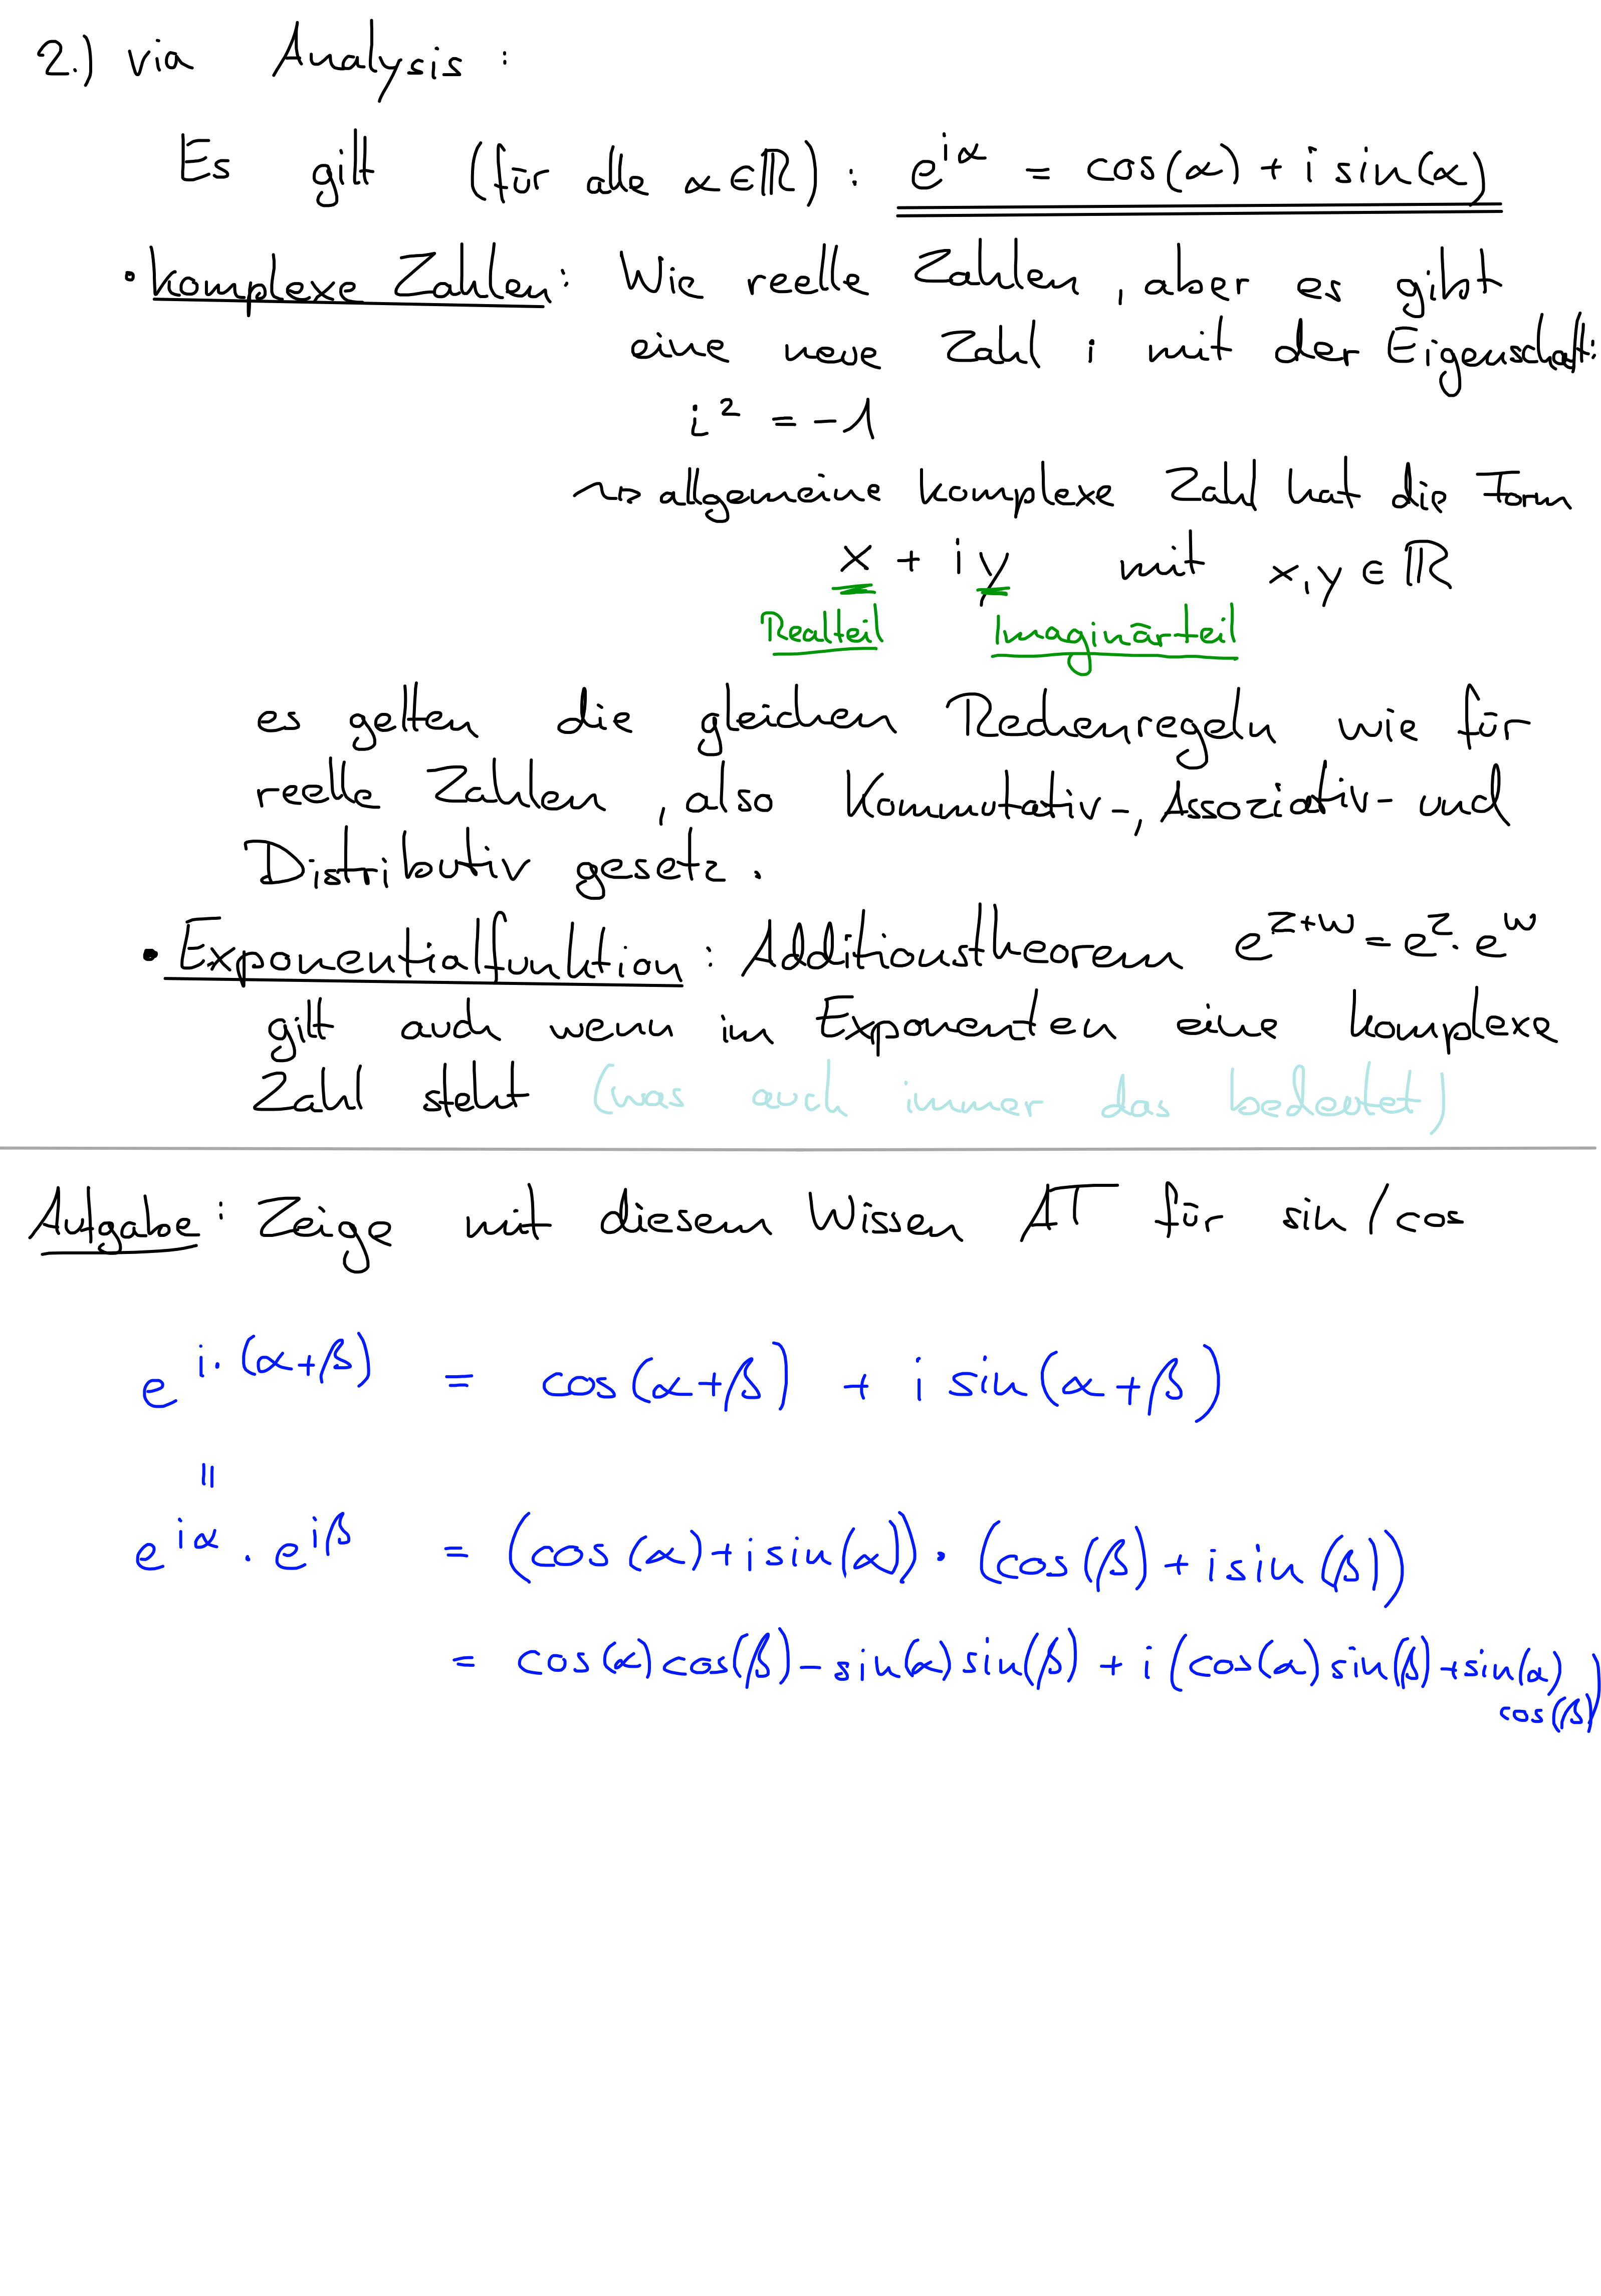 2.) via Analysis :
Es gilt (für alle α∈ℝ) : e^{iα} = cos(α) + i sin(α)
• Komplexe Zahlen : Wie reelle Zahlen, aber es gibt
eine neue Zahl i mit der Eigenschaft:
i² = -1
⇝ allgemeine komplexe Zahl hat die Form
x + i y mit x,y ∈ ℝ
Realteil Imaginärteil
es gelten die gleichen Rechenregeln wie für
reelle Zahlen, also Kommutativ-, Assoziativ- und
Distributivgesetz.
• Exponentialfunktion : Additionstheorem e^{z+w} = e^z · e^w
gilt auch wenn im Exponenten eine komplexe
Zahl steht (was auch immer das bedeutet)
Aufgabe : Zeige mit diesem Wissen AT für sin/cos
e^{i·(α+β)} = cos(α+β) + i sin(α+β)
=
e^{iα} · e^{iβ} = (cos(α)+i sin(α)) · (cos(β) + i sin(β))
= cos(α)cos(β) - sin(α)sin(β) + i (cos(α) sin(β) + sin(α)
cos(β))